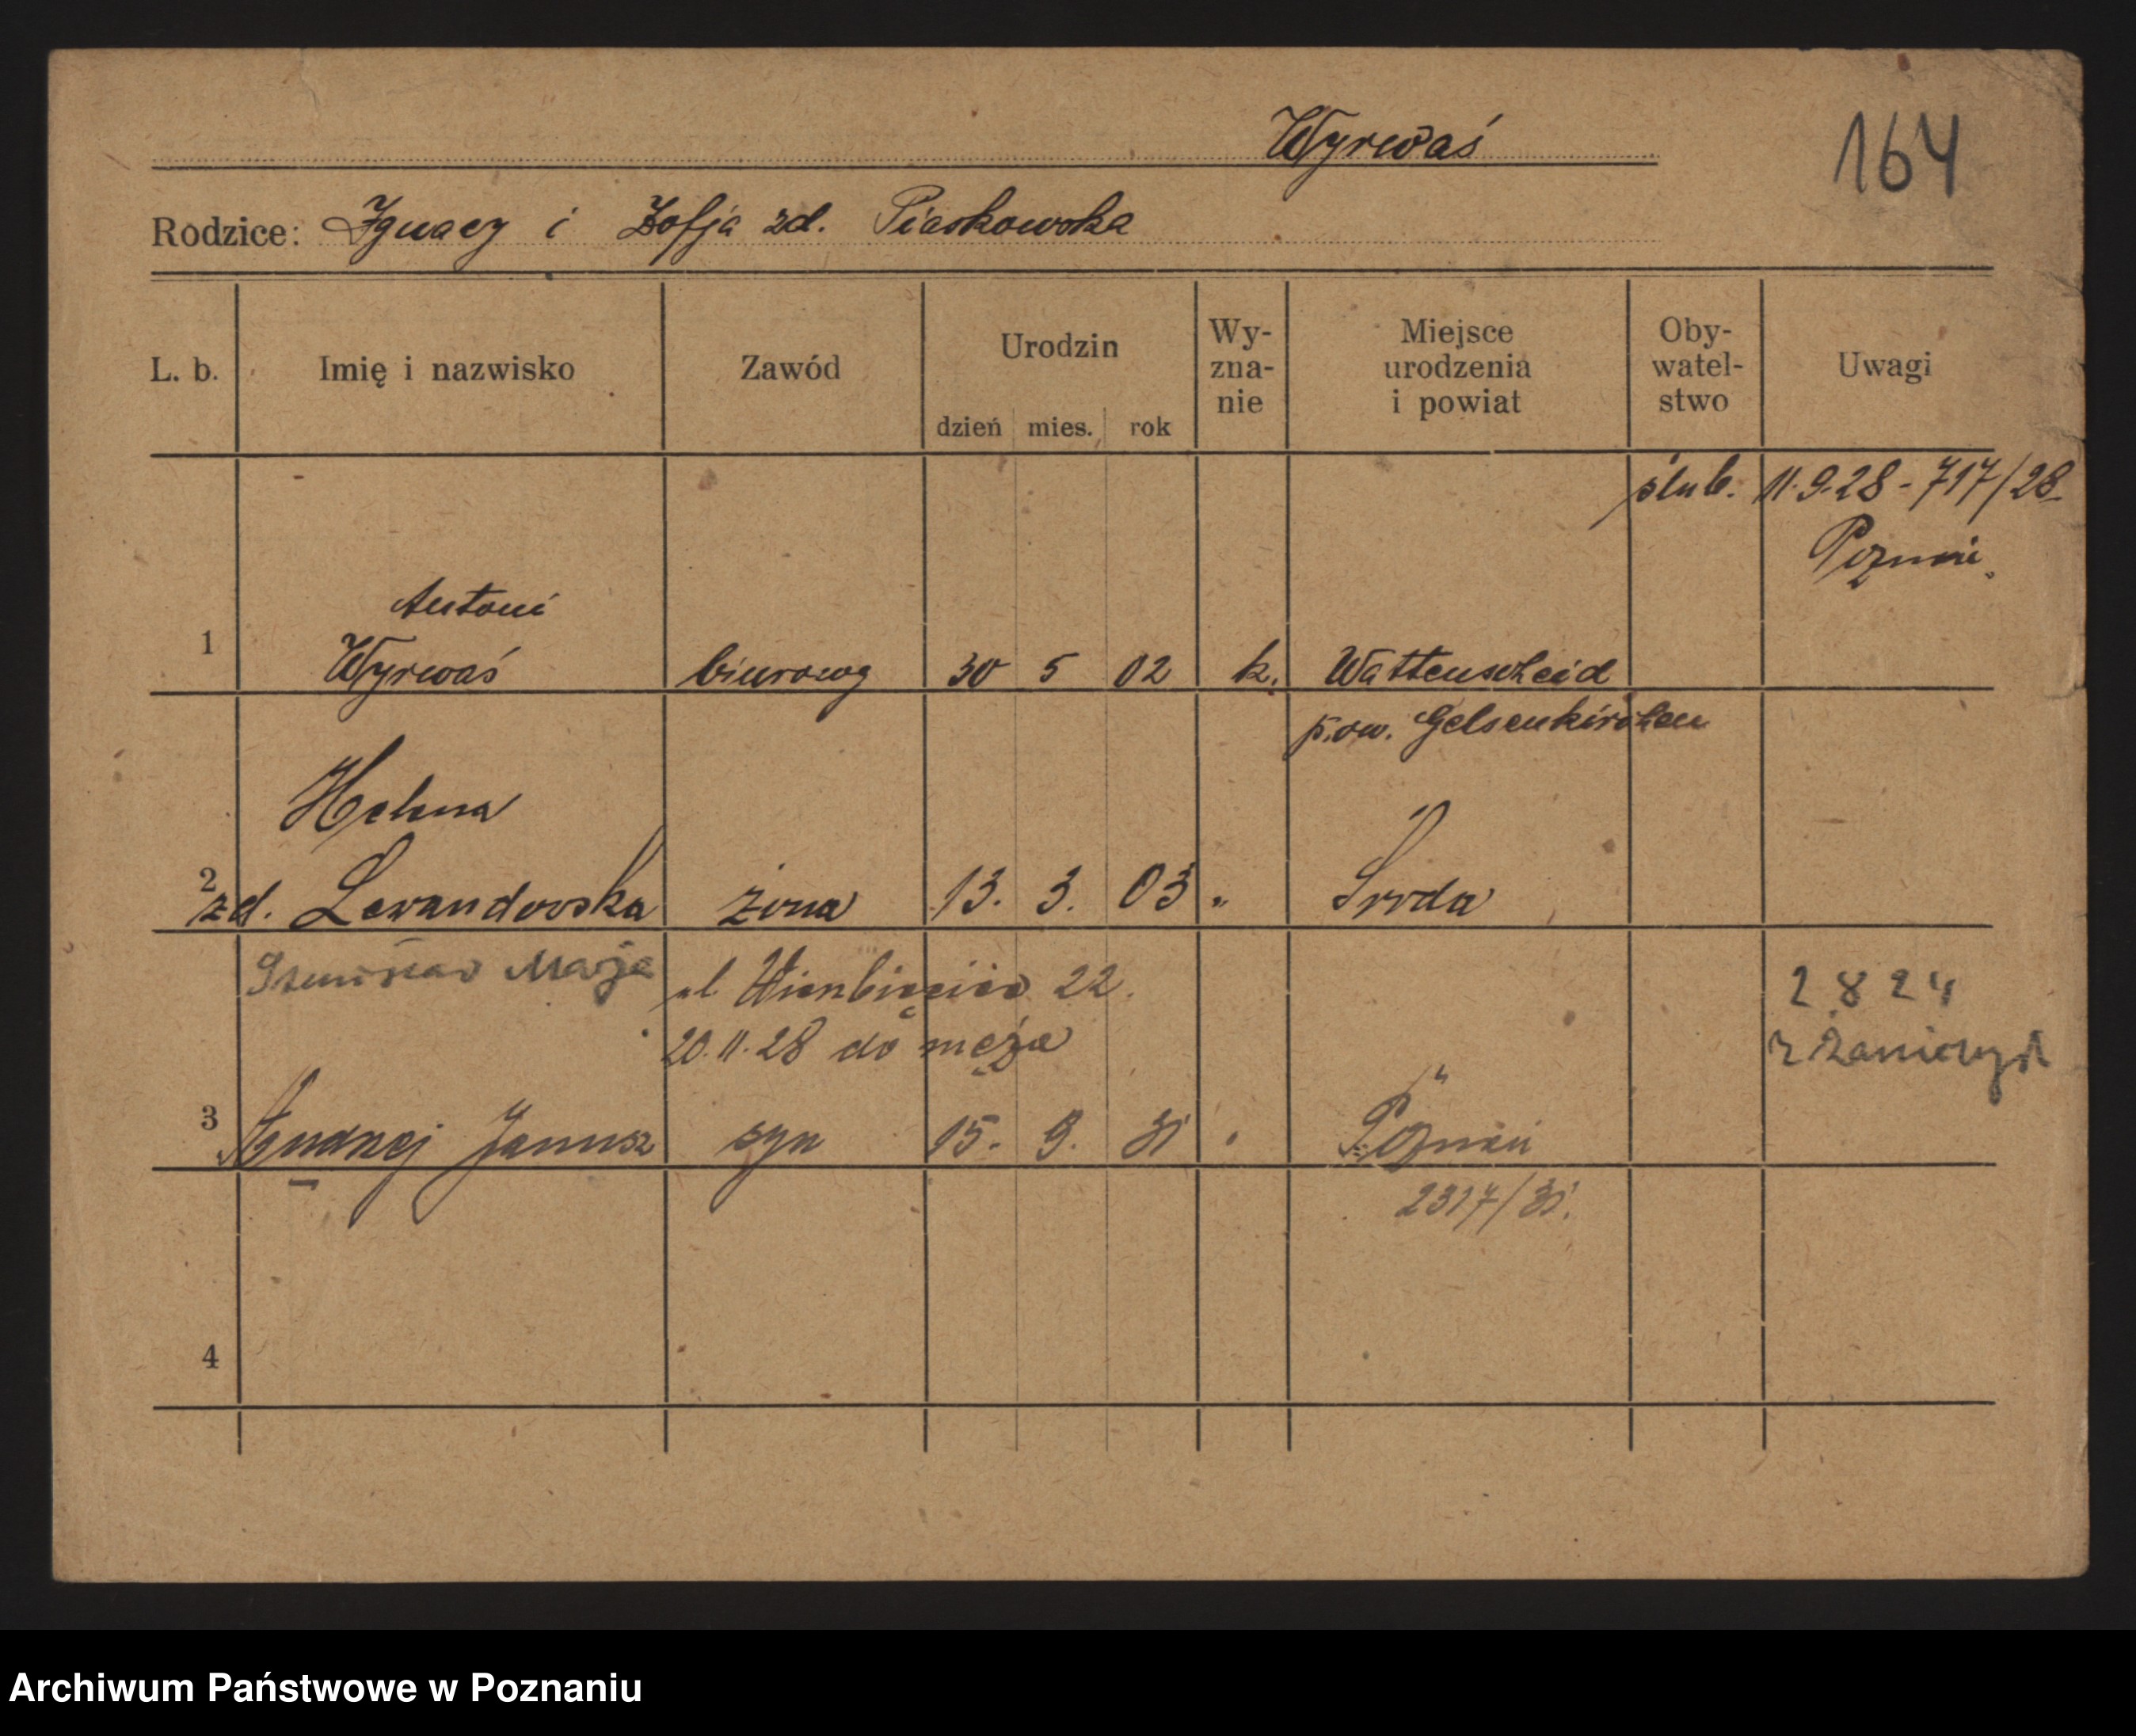 Wyrwaś
164
Rodzice: Ignacy i Zofja zd. Piaskowska
L. b.
Imię i nazwisko
Zawód
Urodzin
dzień mies. rok
Wy-
zna-
nie
Miejsce
urodzenia
i powiat
Oby-
watel-
stwo
Uwagi
ślub. 11.9.28 - 717/28
Poznań.
Antoni
1 Wyrwaś biurowy 30 5 02 k. Wattenscheid
pow. Gelsenkirchen
Helena
2 zd. Lewandowska żona 13. 3. 03 " Środa
Stanisław Marja
ul. 22.
20.11.28 do męża
2 8 24
z Zaniemyśl
3 Andrzej Janusz syn 15. 9. 31 " Poznań
2317/31.
4
Archiwum Państwowe w Poznaniu